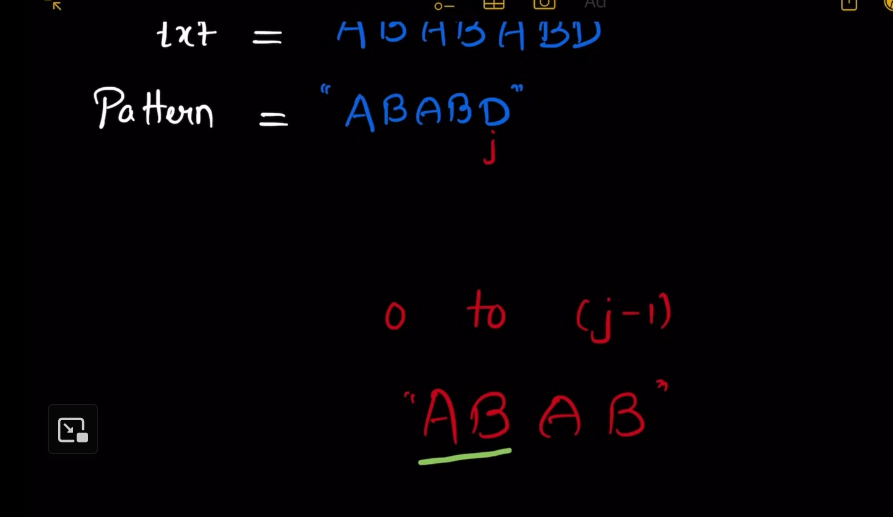 txt = ABABABD
Pattern = "ABABD"
j
0 to (j-1)
"ABAB"